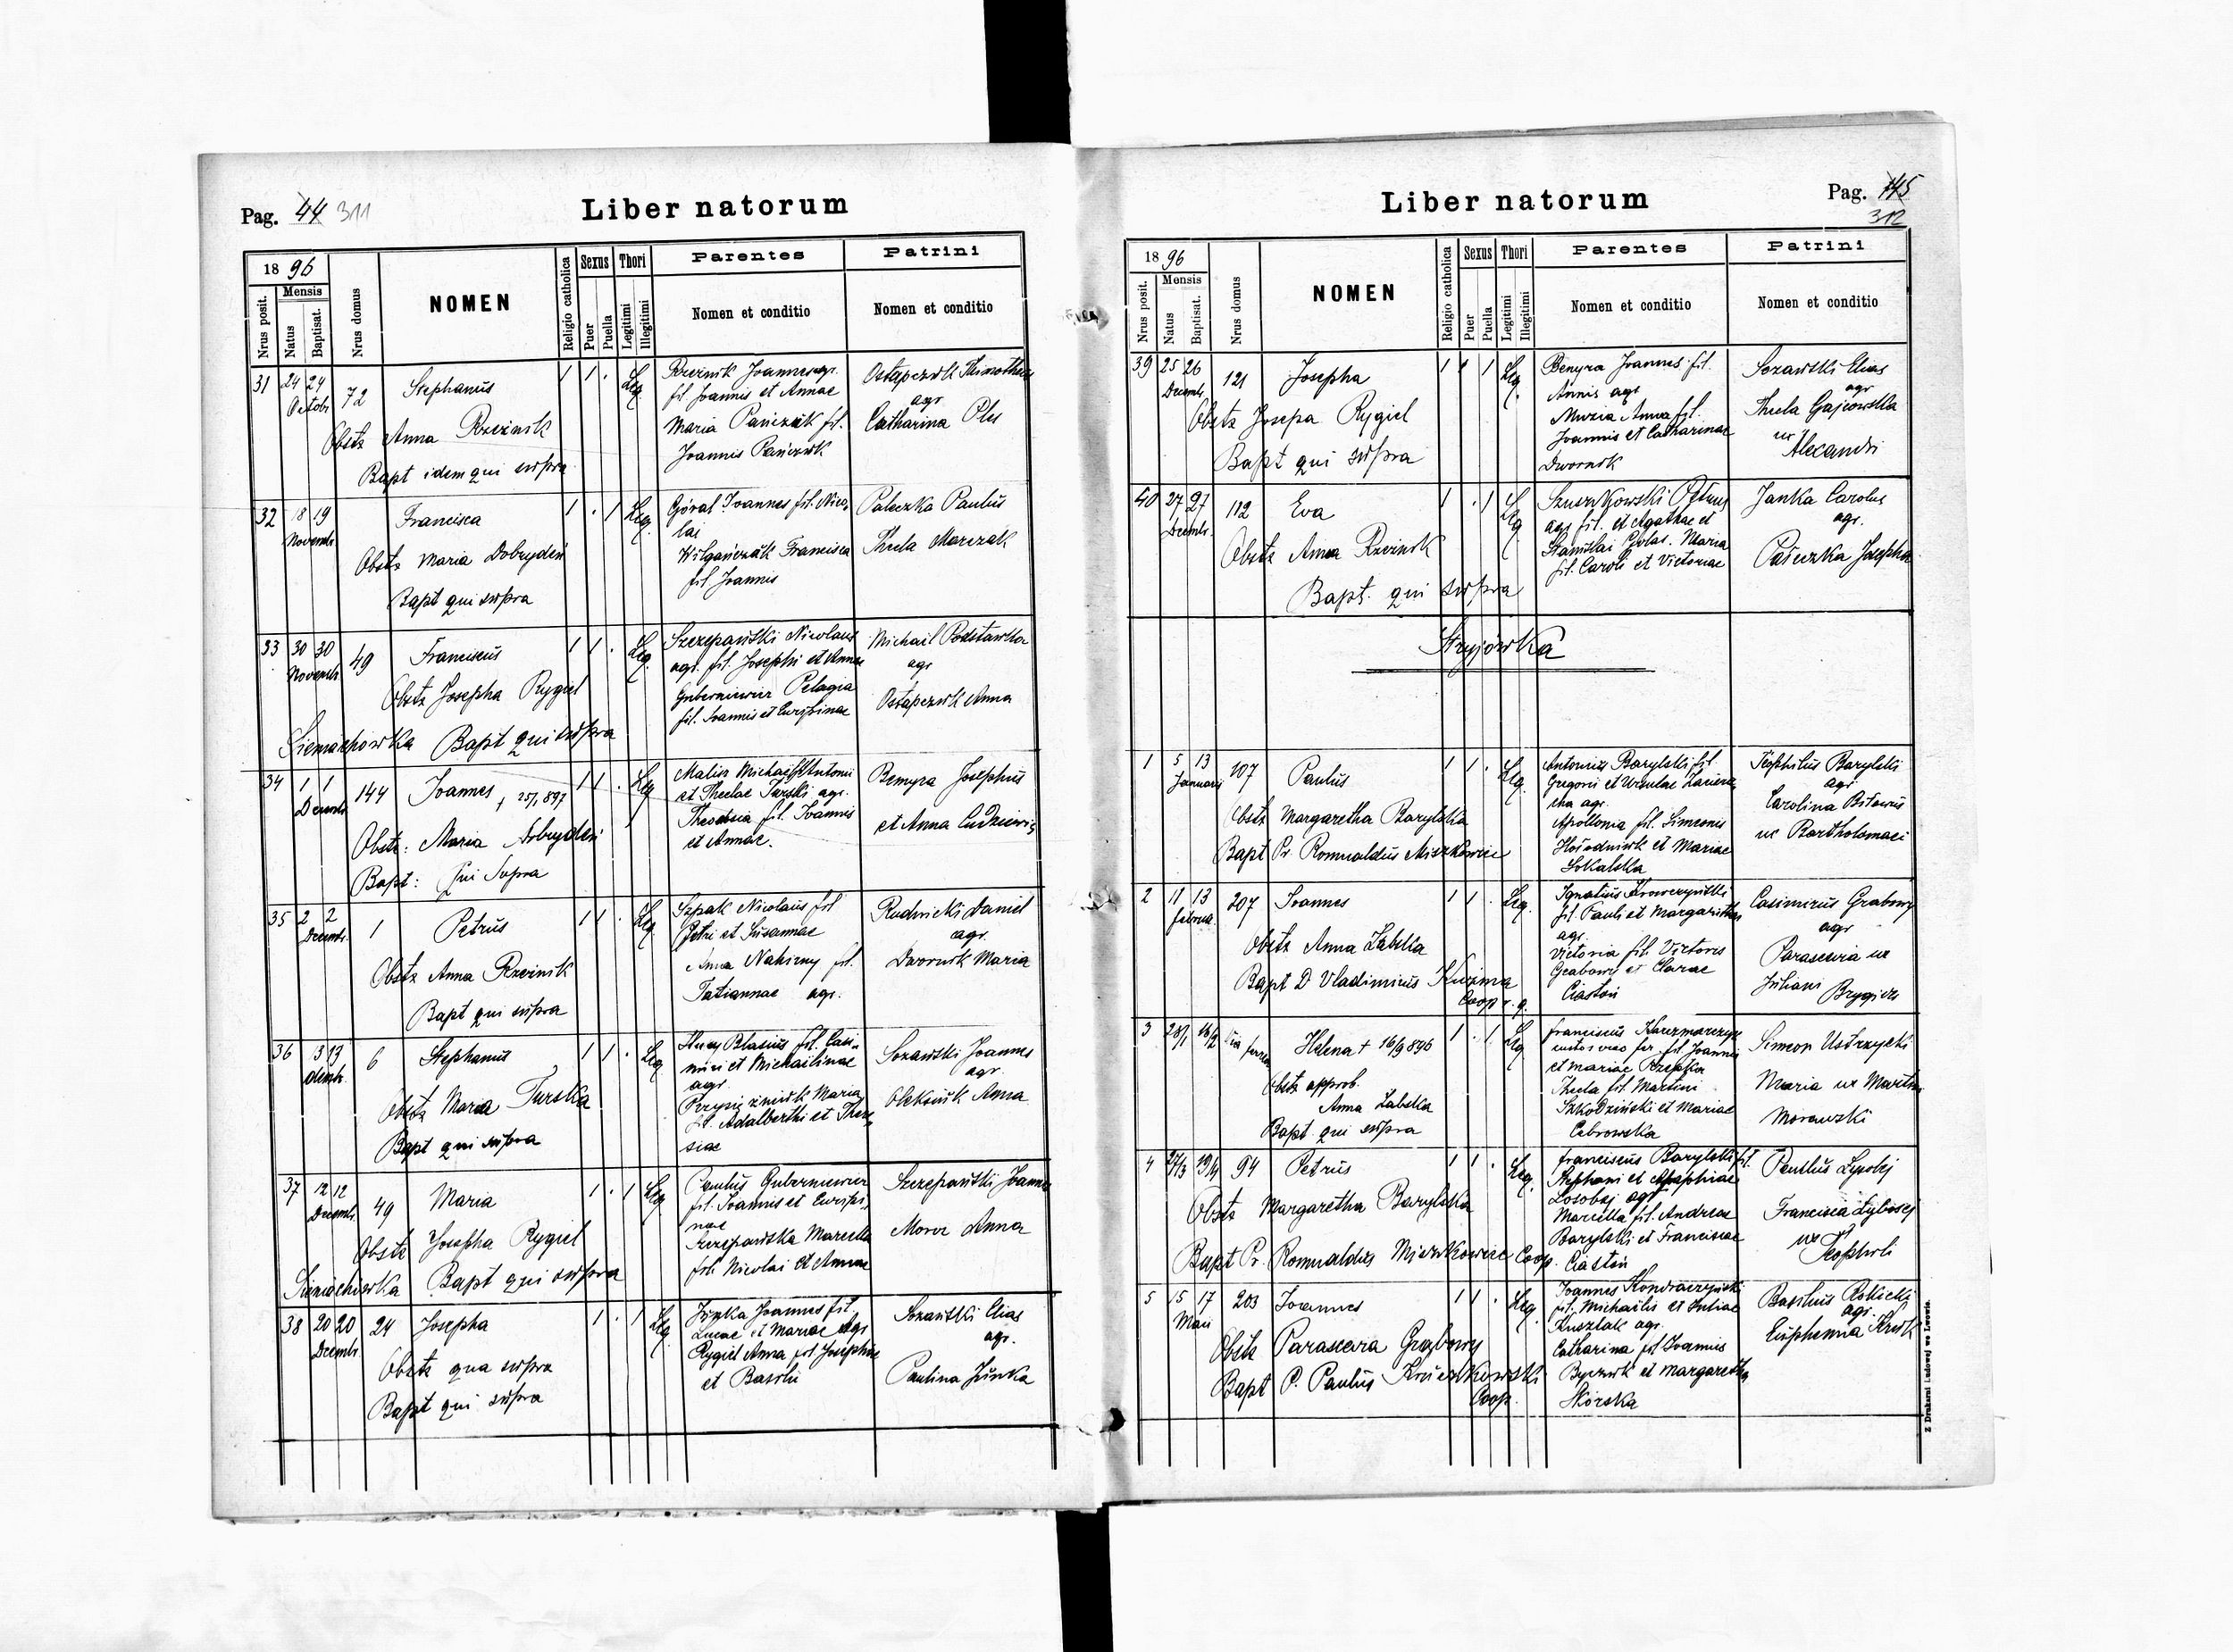 Pag. 44 311
Liber natorum
18 96
Nrus posit.
Mensis
Natus
Baptisat.
Nrus domus
NOMEN
Religio catholica
Sexus
Puer
Puella
Thori
Legitimi
Illegitimi
Parentes
Nomen et conditio
Patrini
Nomen et conditio
31 24 24 72 Stephanus 1 1 . Leg.
Octobr
Obstx Anna Rzeźnik
Bapt idem qui supra
Rzeźnik Joannes agr.
fil Joannis et Annae
Maria Pańczuk fil.
Joannis Pańczuk
Ostapczuk Thimotheus
agr
Catharina Ples
32 18 19 Francisca 1 . 1 Leg.
Novembr
Obstx Maria Dobrydeń
Bapt qui supra
Góral Joannes fil. Nico-
lai
Francisca
fil Joannis
Pałeczka Paulus
Thecla Marczak
33 30 30 49 Franciscus 1 1 . Leg.
Novembr
Obstx Josepha Rygiel
Bapt qui supra
Szczepański Nicolaus
agr. fil. Josephi et Annae
Guberniewicz Pelagia
fil. Joannis et
Michail Podstawka
agr
Ostapczuk Anna
34 1 1 144 Joannes + 25/1 897 1 1 . Leg
Decembr
Obstx: Maria Dobrydeń
Bapt: Qui Supra
Malisz Michael fil Antonii
et Theclae Turski agr.
Theodosia fil. Joannis
et Annae.
Benyra Josephus
et Anna
35 2 2 1 Petrus 1 1 . Leg
Decembr.
Obstx Anna Rzeźnik
Bapt qui supra
Szpak Nicolaus fil
Petri et Susannae
Anna Nahirny fil.
Tatiannae agr.
Rudnicki Daniel
agr.
Dwornik Maria
36 13 13 6 Stephanus 1 1 . Leg
Obstx Maria Turska
Bapt qui supra
Blasius fil. Casi-
miri et Michailinae
agr.
Maria
fil. Adalberthi et There-
siae
Sozański Joannes
agr.
Oleksiuk Anna
37 12 12 49 Maria 1 . 1 Leg
Decembr.
Obstx Josepha Rygiel
Bapt qui supra
Paulus Guberniewicz
fil. Joannis et Euripi-
nae
Szczepańska Marcella
fil. Nicolai et Annae
Szczepański Joannes
Anna
38 20 20 24 Josepha 1 . 1 Leg
Decembr.
Obstx qua supra
Bapt qui supra
Joannes fil.
Lucae et Mariae agr
Rygiel Anna fil Josephae
et Basilii
Sozański Elias
agr.
Paulina Junka
Pag. 145
312
Liber natorum
18 96
Nrus posit.
Mensis
Natus
Baptisat.
Nrus domus
NOMEN
Religio catholica
Sexus
Puer
Puella
Thori
Legitimi
Illegitimi
Parentes
Nomen et conditio
Patrini
Nomen et conditio
39 25 26 121 Josepha 1 1 1 Leg.
Decembr.
Obstx Josepa Rygiel
Bapt qui supra
Benyra Joannes fil.
Annis agr
Anna fil.
Joannis et Catharinae
Dwornik
Sozański Elias
agr
Thecla Gajewska
ux
Alexandri
40 27 27 112 Eva 1 . 1 Leg
Decembr.
Obstx Anna Rzeźnik
Bapt. qui supra
Petrus
agr fil. et Agathae et
Stanislai Maria
fil. Caroli et Victoriae
Janka Carolus
agr.
Pałeczka Josepha
Stryjówka
1 5 13 107 Paulus 1 1 . Leg.
Januari
Obstx Margaretha Barylska
Bapt Pr. Romualdus Miszkowicz
Antonius Barylski fil
Gregorii et Ursulae
agr.
Apollonia fil. Simeonis
et Mariae
Sokalska
Teophilus Barylski
agr
Carolina
ux Bartholomaei
2 11 13 207 Joannes 1 1 . Leg.
Februa
Obstx Anna Labska
Bapt D Vladimirus Kuźma
Coop r. g.
Ignatius
fil. Pauli et Margarithae
agr.
Victoria fil. Victoris
Grabowy et Clarae
Ciastoń
Casimirus Grabowy
agr
Parascevia ux
Juliani
3 28/1 16/2 Helena + 16/9 896 1 . 1 Leg
Obstx approb.
Anna Labska
Bapt. qui supra
Franciscus
fil. Joannis
et Mariae
Thecla fil. Martini
Szkodziński et Mariae
Cebrowska
Simeon Ustrzycki
Maria ux Martini
Morawski
4 27/3 19/4 94 Petrus 1 1 . Leg.
Obstx Margaretha Barylska
Bapt Pr. Romualdus Miszkowicz Coop.
Franciscus Barylski fil.
Stephani et
agr
Marcella fil. Andreae
Barylski et Franciscae
Ciastoń
Paulus
Francisca
ux
Teophili
5 15 17 203 Joannes 1 1 . Leg.
Maii
Obstx Parascevia Grabowy
Bapt P. Paulus
Coop.
Joannes Kondraczyński
fil. Michaëlis et Juliae
agr.
Catharina fil Joannis
et Margaretha
Skórska
Basilius Rokicki
agr.
Euphemia
Z Drukarni Ludowej we Lwowie.